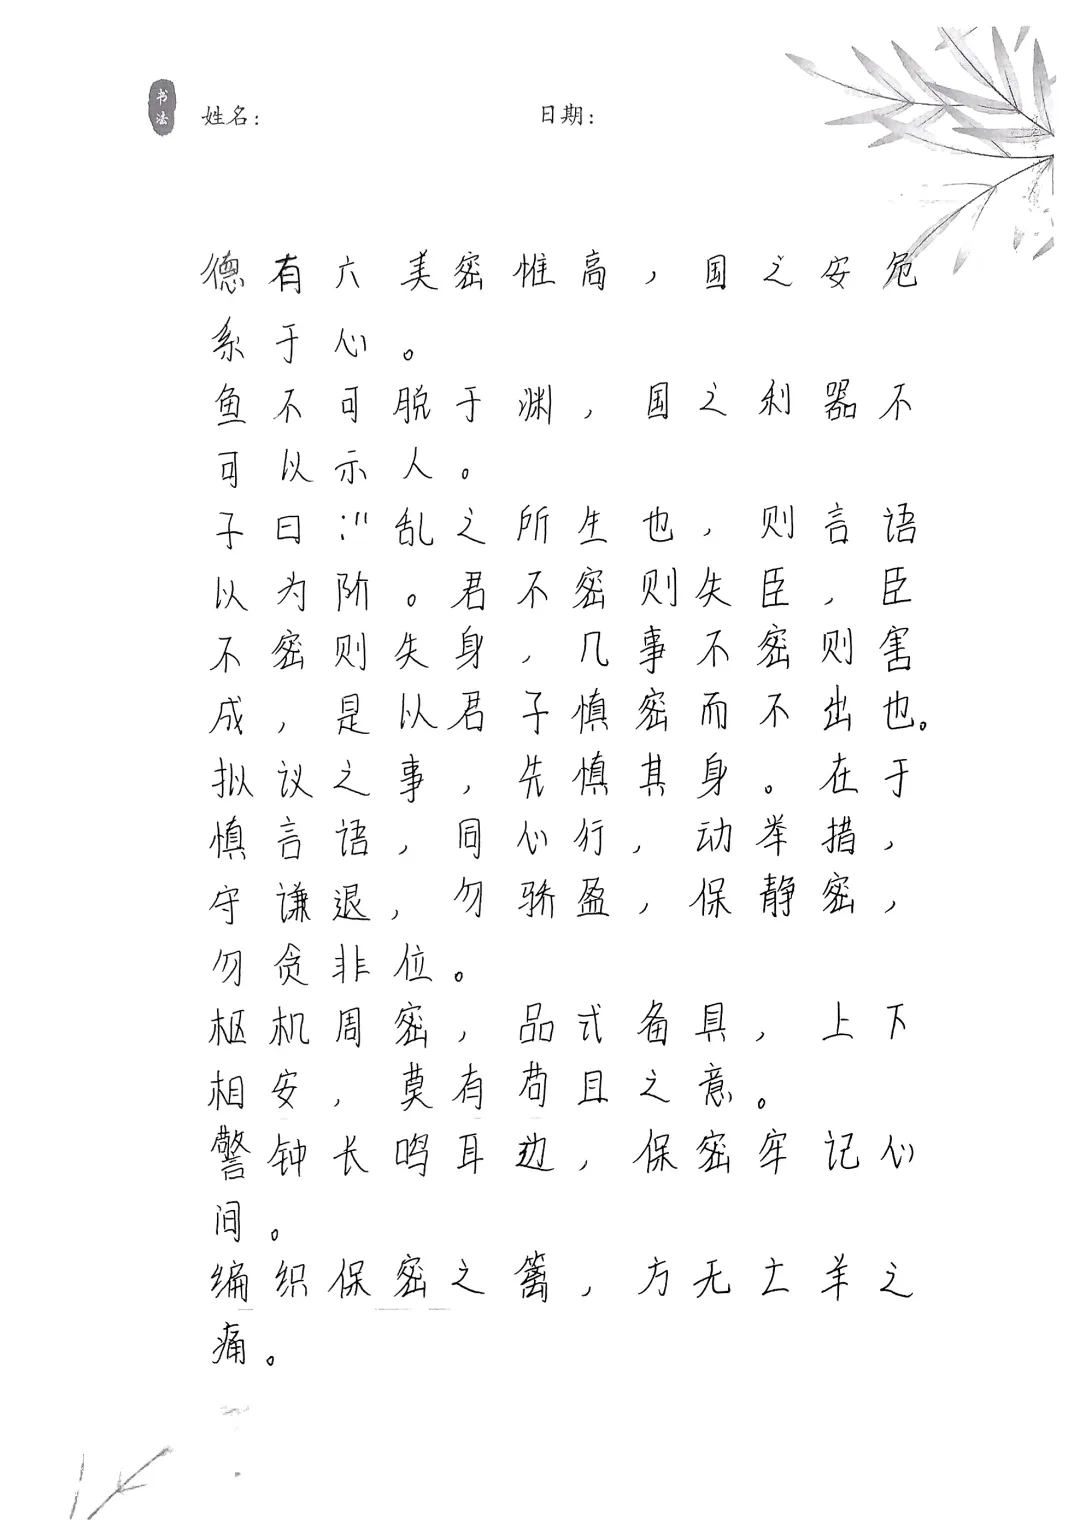 书法
姓名： 日期：
德有六美密惟高，国之安危
系于心。
鱼不可脱于渊，国之利器不
可以示人。
子曰："乱之所生也，则言语
以为阶。君不密则失臣，臣
不密则失身，几事不密则害
成，是以君子慎密而不出也。
拟议之事，先慎其身。在于
慎言语，同心行，动举措，
守谦退，勿骄盈，保静密，
勿贪非位。
枢机周密，品式备具，上下
相安，莫有苟且之意。
警钟长鸣耳边，保密牢记心
间。
编织保密之篱，方无亡羊之
痛。